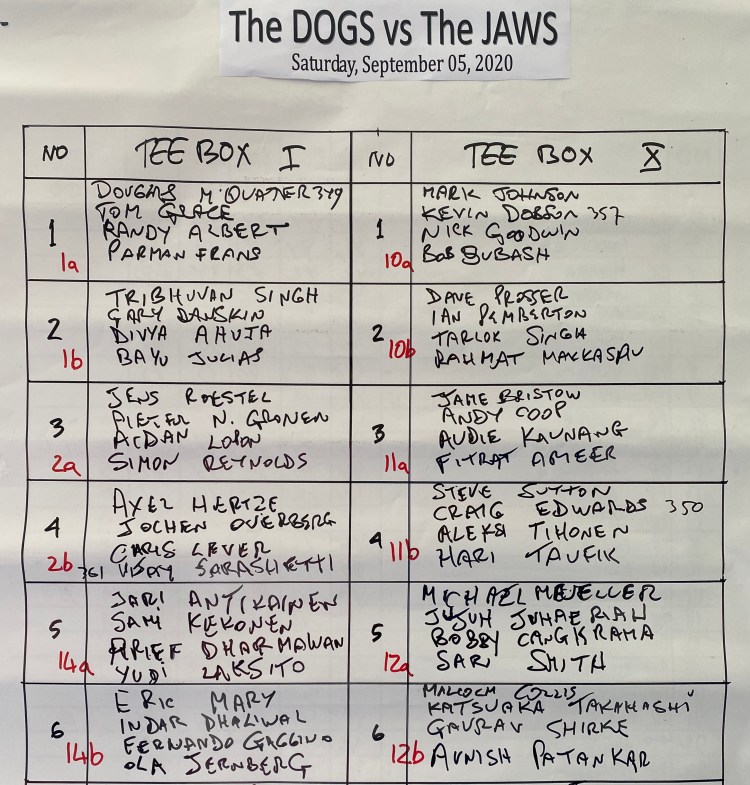 The DOGS vs The JAWS
Saturday, September 05, 2020
NO TEE BOX I NO TEE BOX X
DOUGLAS M'QUATER 349
TOM GRACE
RANDY ALBERT
PARMAN FRANS
1
1a
MARK JOHNSON
KEVIN DOBSON 357
NICK GOODWIN
BOB SUBASH
1
10a
TRIBHUVAN SINGH
GARY DANSKIN
DIVYA AHUJA
BAYU JULIAS
2
1b
DAVE PROSSER
IAN PEMBERTON
TARLOK SINGH
RAHMAT MAKKASAU
2
10b
JENS ROESTEL
PIETER N. GRONEN
AIDAN
SIMON REYNOLDS
3
2a
JAME BRISTOW
ANDY COOP
AUDIE KAUNANG
FITRAT AMEER
3
11a
AXEL HERTZE
JOCHEN OVERBERG
CHRIS LEVER
361 VIJAY SARASHETTI
4
2b
STEVE SUTTON
CRAIG EDWARDS 350
ALEKSI TIHONEN
HARI TAUFIK
4
11b
JARI ANTIKAINEN
SAMI KEKONEN
ARIEF DHARMAWAN
YUDI LAKSITO
5
14a
MICHAEL MEUELLER
JUJUH JUHAERIAH
BOBBY CANGKRAMA
SARI SMITH
5
12a
ERIC MARY
INDAR DHALIWAL
FERNANDO GAGGINO
OLA JERNBERG
6
14b
MALCOLM COLLIS
KATSUAKA TAKAHASHI
GAURAV SHIRKE
AVNISH PATANKAR
6
12b